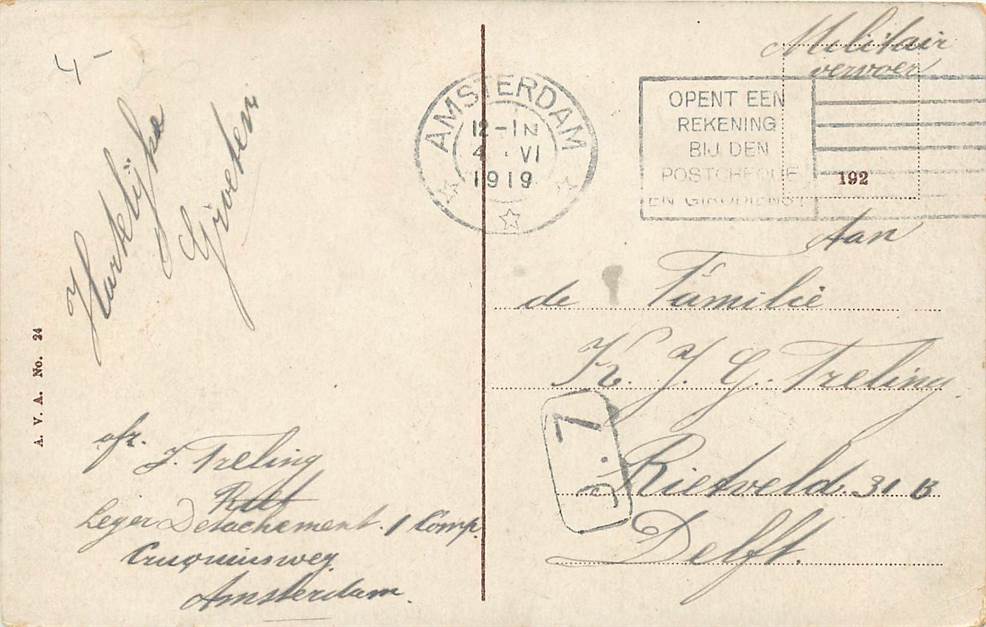 4-
Hartelijke
Groeten
A. V. A. No. 24
afz. J. Treling
Leger Detachement. 1 Comp.
Cruquiusweg
Amsterdam.
AMSTERDAM
12-1N
4 . VI
1919
OPENT EEN
REKENING
BIJ DEN
POSTCHEQUE
EN GIRODIENST
Militair
vervoer
192
Aan
de Familie
K. J. G. Treling.
Rietveld. 31 B
Delft.